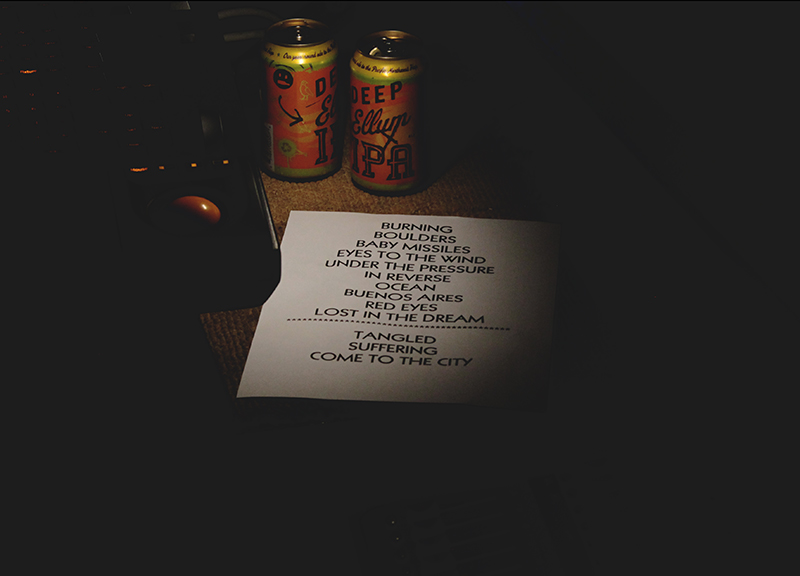 DEEP
Ellum
IPA
DEEP
Ellum
IPA
BURNING
BOULDERS
BABY MISSILES
EYES TO THE WIND
UNDER THE PRESSURE
IN REVERSE
OCEAN
BUENOS AIRES
RED EYES
LOST IN THE DREAM
TANGLED
SUFFERING
COME TO THE CITY